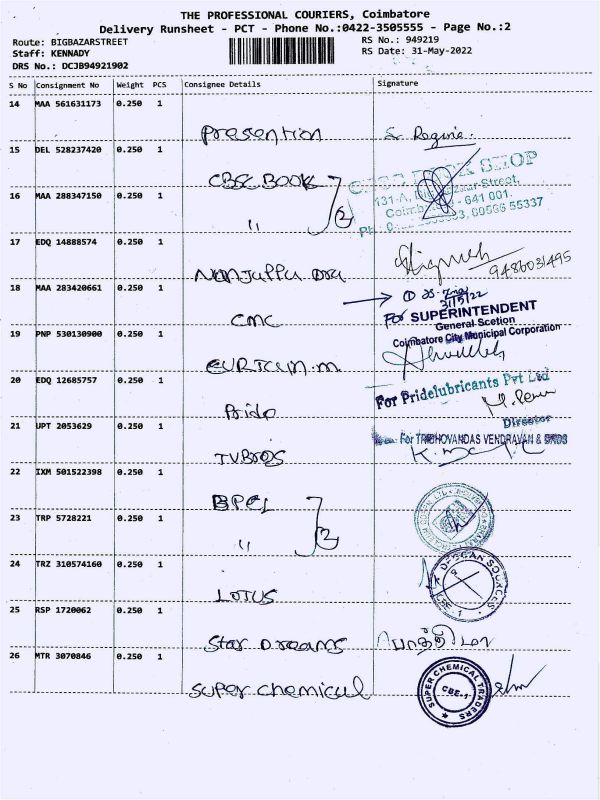 THE PROFESSIONAL COURIERS, Coimbatore
Delivery Runsheet - PCT - Phone No.:0422-3505555 - Page No.:2
Route: BIGBAZARSTREET
RS No.: 949219
Staff: KENNADY
RS Date: 31-May-2022
DRS No.: DCJB94921902
S No Consignment No Weight PCS Consignee Details Signature
14 MAA 561631173 0.250 1
Presention
15 DEL 528237420 0.250 1
CBSC BOOK
SHOP
16 MAA 288347150 0.250 1
131-A, Street,
641 001.
" 2
55337
17 EDQ 14888574 0.250 1
9486031495
18 MAA 283420661 0.250 1
31/5/22
CMC
For SUPERINTENDENT
General Scetion
19 PNP 530130900 0.250 1
Coimbatore City Municipal Corporation
20 EDQ 12685757 0.250 1
For Pridelubricants Pvt Ltd
Pride
Director
21 UPT 2053629 0.250 1
For TRIBHOVANDAS VENDRAVAN & BROS
TVBROS
22 IXM 501522398 0.250 1
BPCL
23 TRP 5728221 0.250 1
" 2
24 TRZ 310574160 0.250 1
DECCAN SOURCES
LOTUS
25 RSP 1720062 0.250 1
Star Dreams
26 MTR 3070846 0.250 1
Super chemical
SUPER CHEMICAL TRADERS
CBE-1